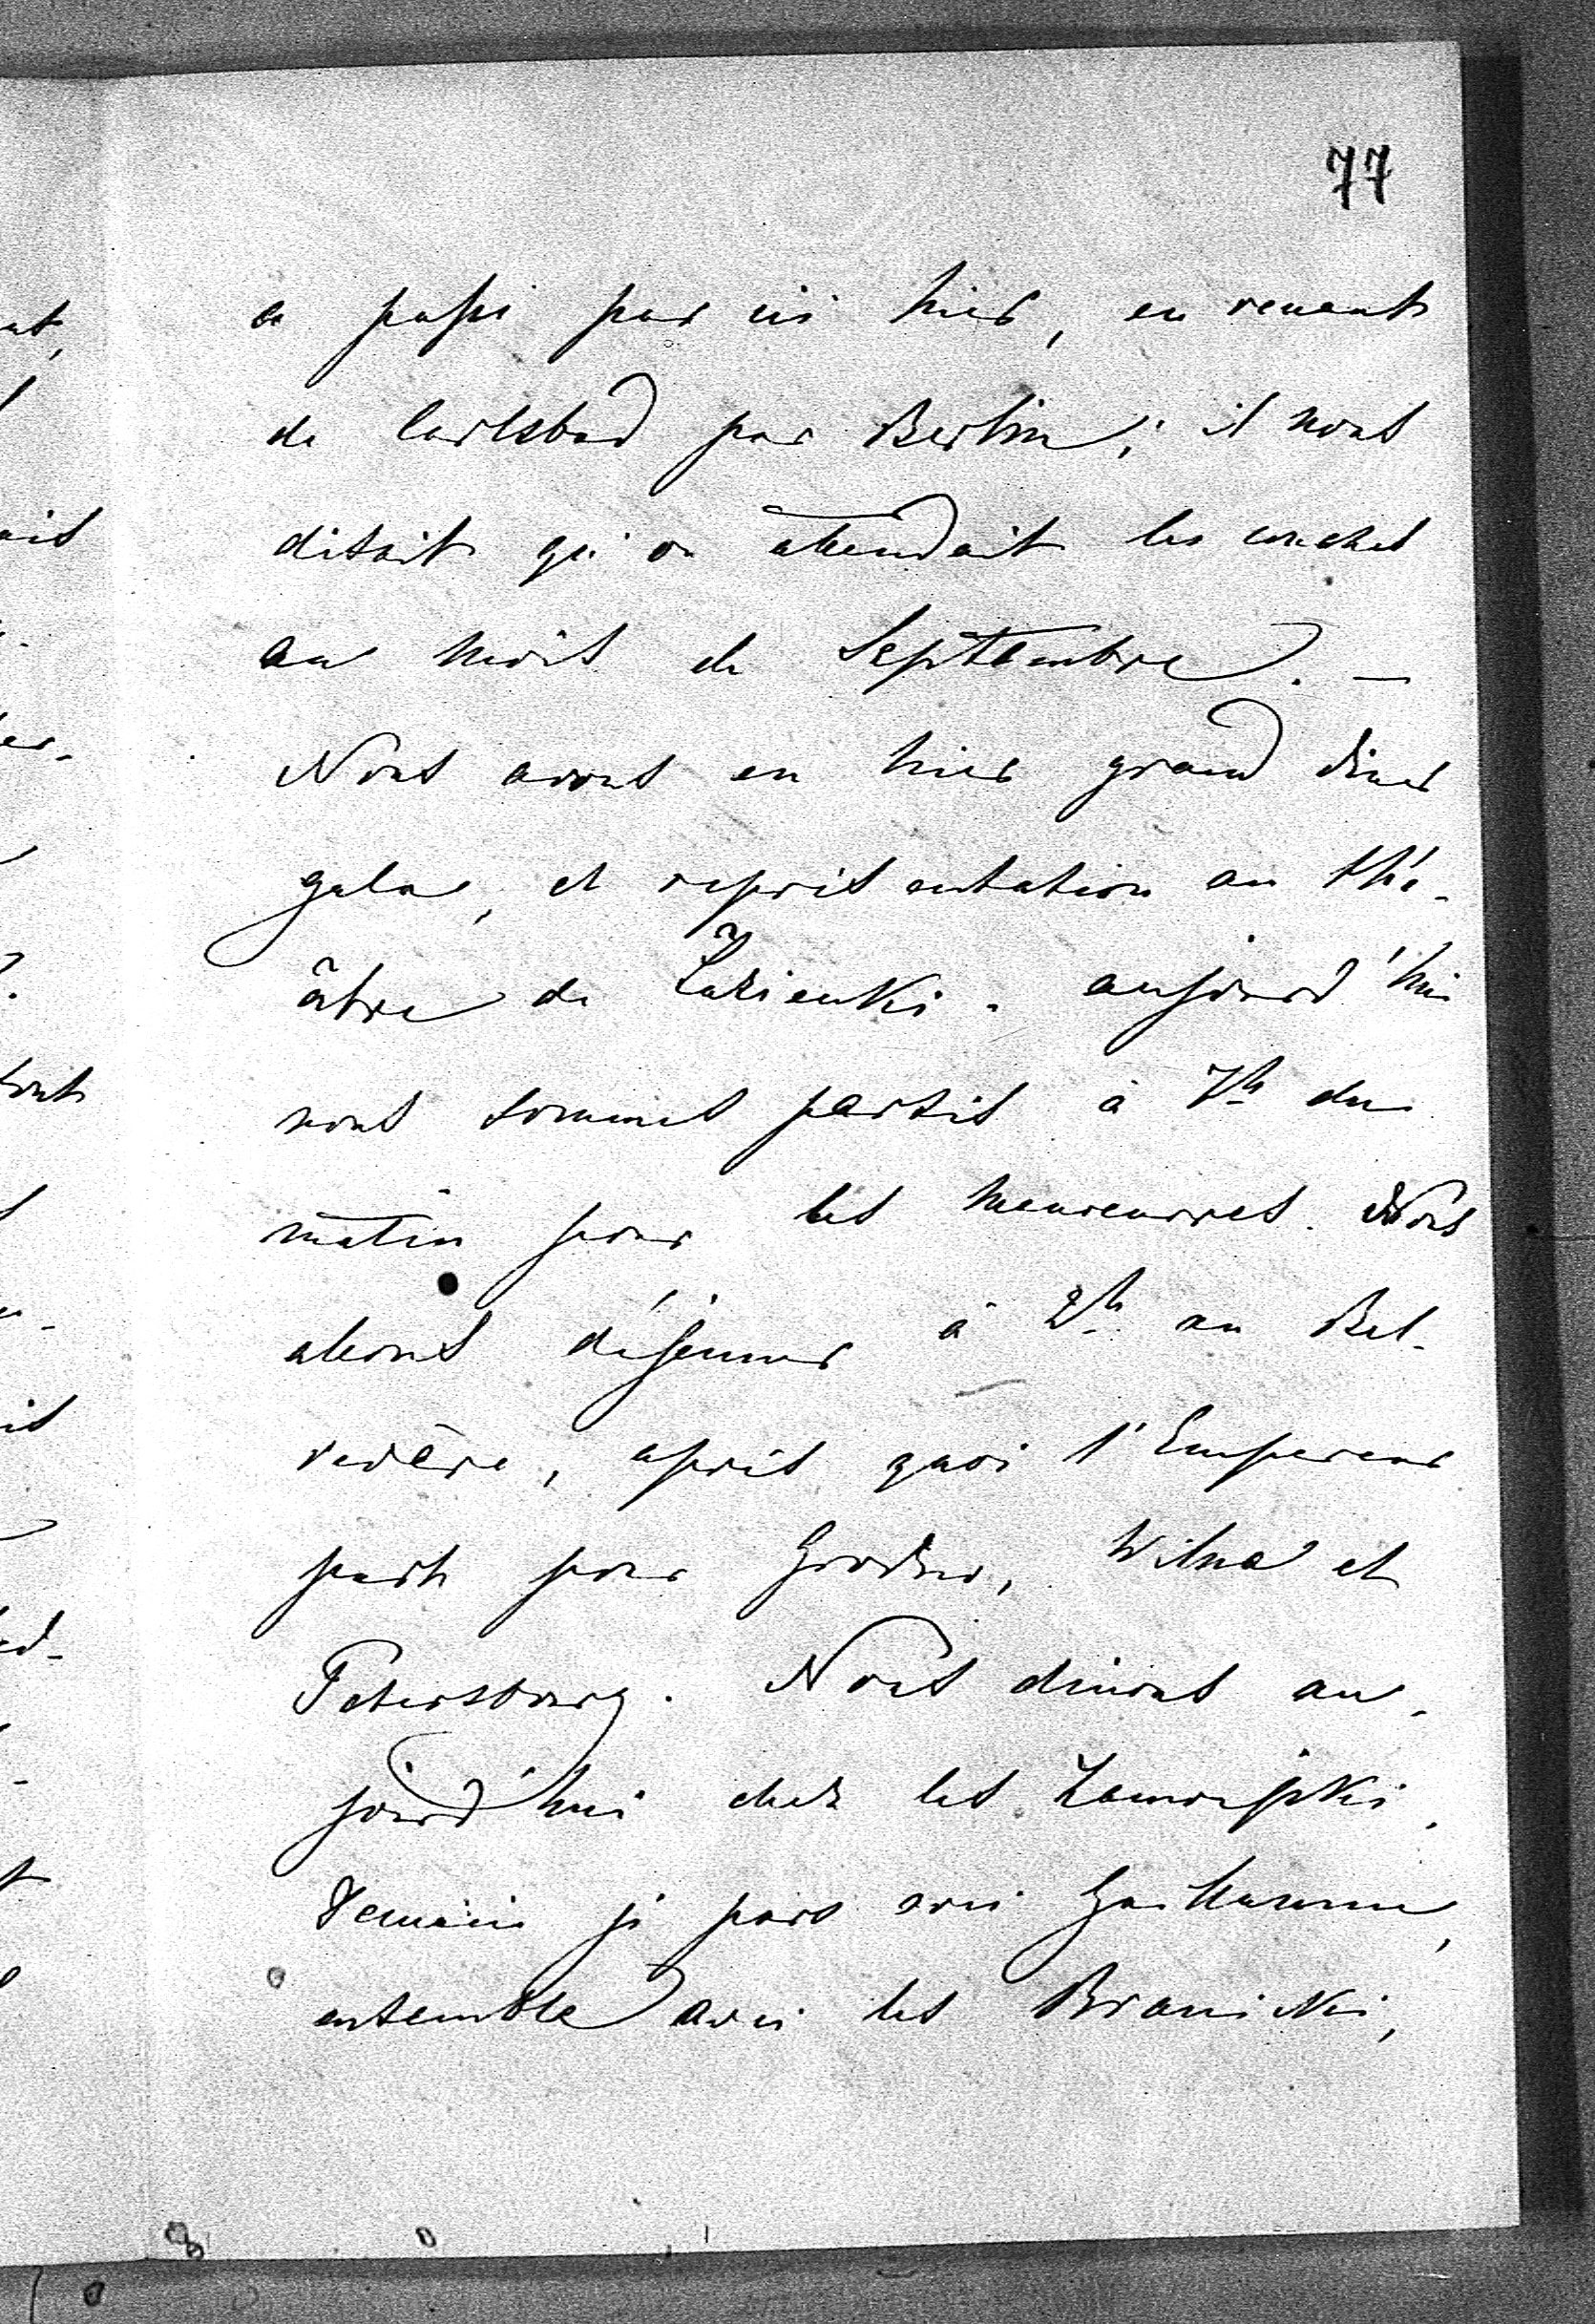 77
a passé par ici hier, en venant
de Carlsbad par Berlin; il nous
disait qu'on attendait les couches
au mois de Septembre. —
Nous avons eu hier grand diner
gala, et représentation au thé-
âtre de Łazienki. aujourd'hui
nous sommes partis à 7h du
matin pour les manœuvres. Nous
allons déjeuner à 2h au Bel-
vedère, après quoi l'Empereur
part pour Grodno, Wilna et
Petersbourg. Nous dinons au-
jourd'hui chez les Zamoyski,
Demain je pars avec Guillaume,
ensemble avec les Branicki,